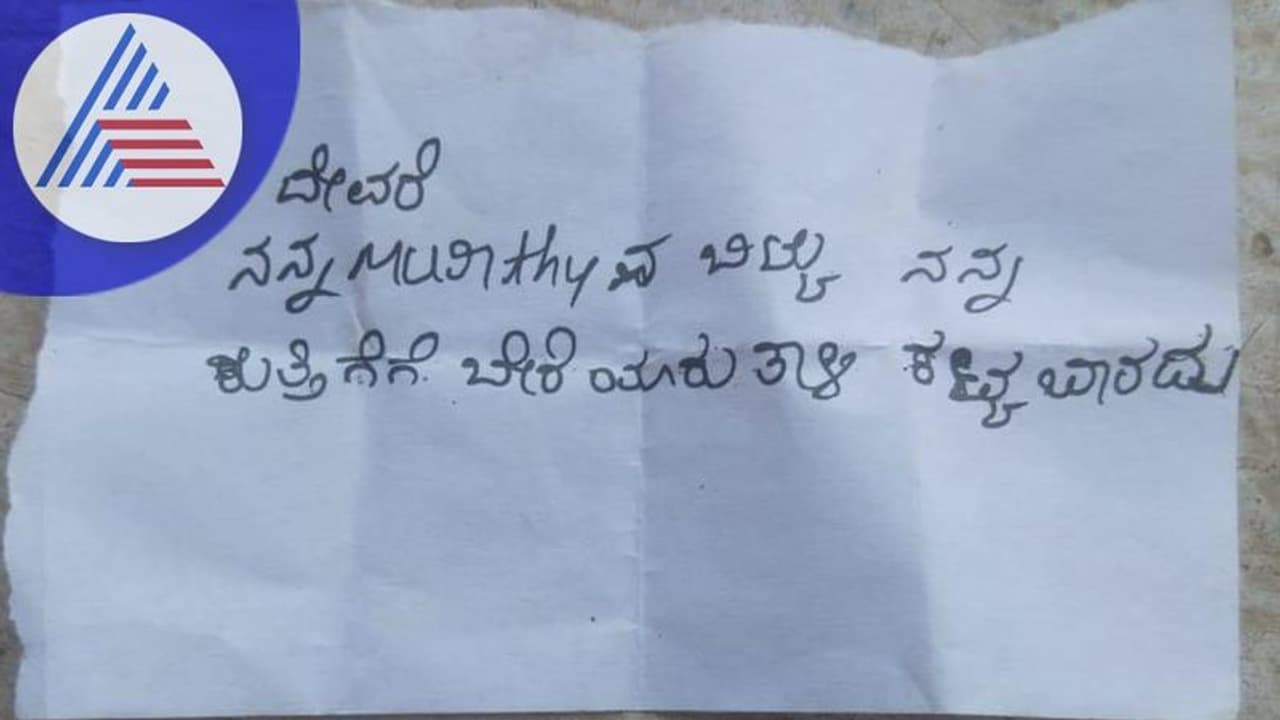 ದೇವರೆ
ನನ್ನ Murthy ವ ಬಿಟ್ಟು ನನ್ನ
ಕುತ್ತಿಗೆಗೆ ಬೇರೆ ಯಾರು ತಾಳಿ ಕಟ್ಟಬಾರದು